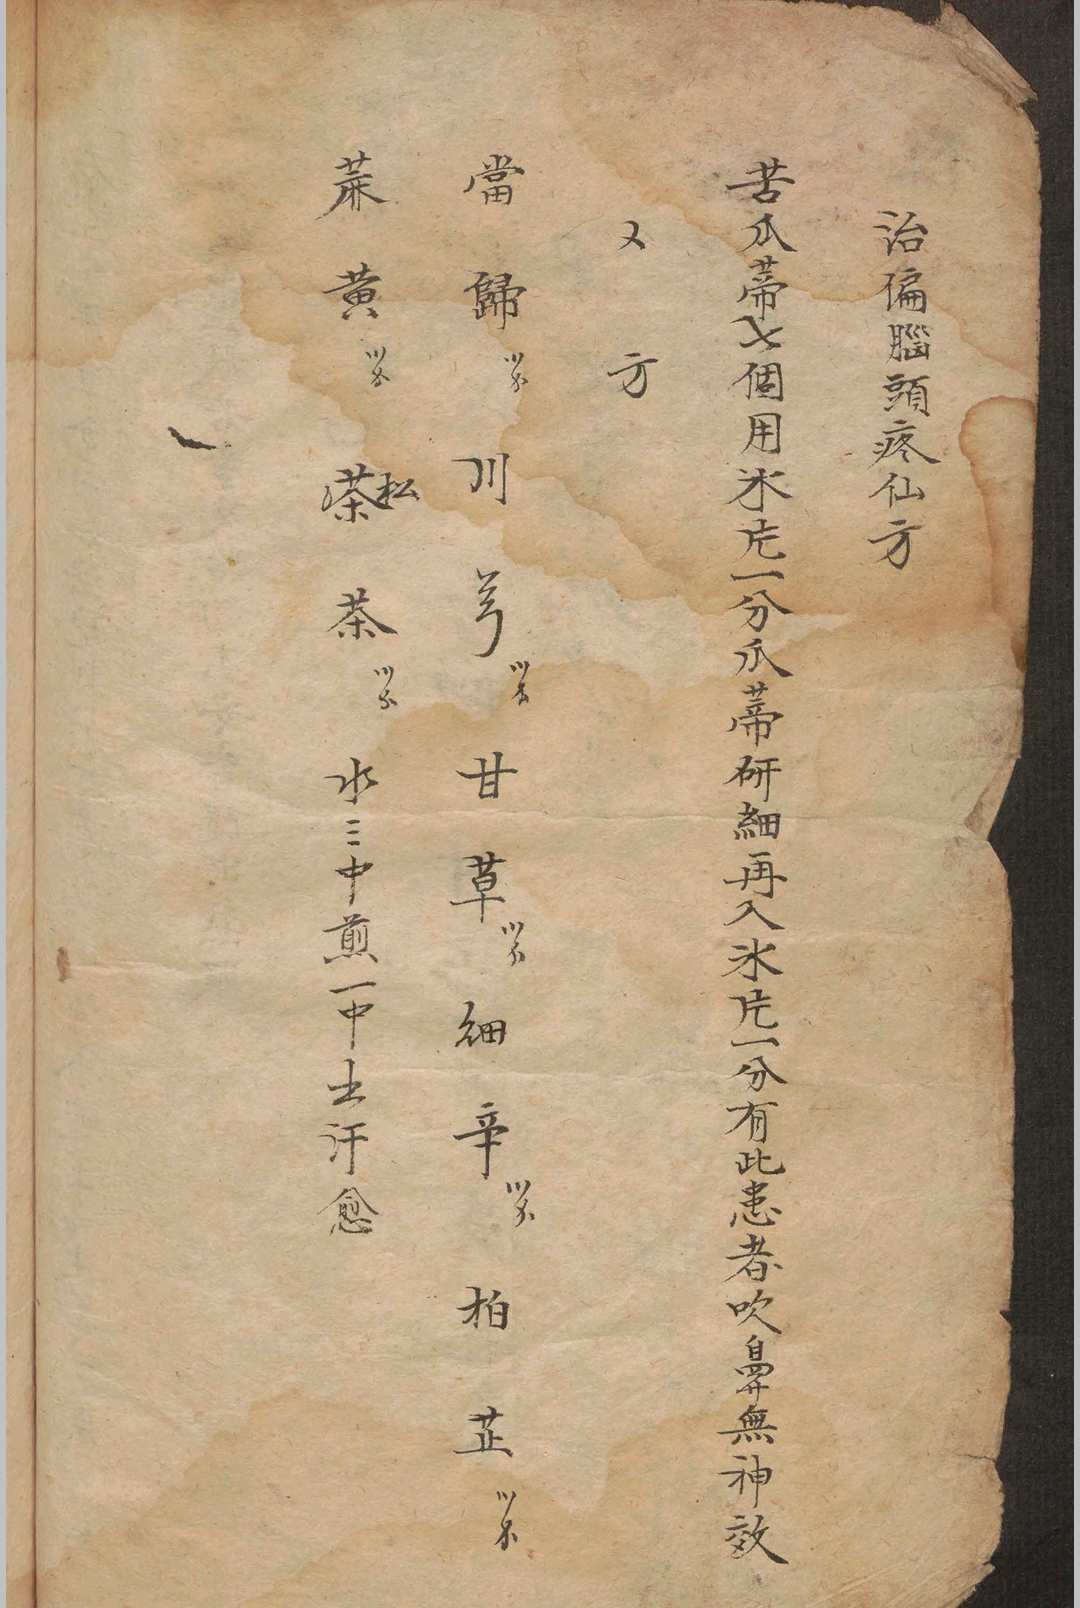 治偏腦頭疼仙方
苦瓜蒂七個用氷片一分瓜蒂研細再入氷片一分有此患者吹鼻無神效
又方
當歸 川芎 甘草 細辛 柏芷
蔴黃 松茶 水三中煎一中出汗愈